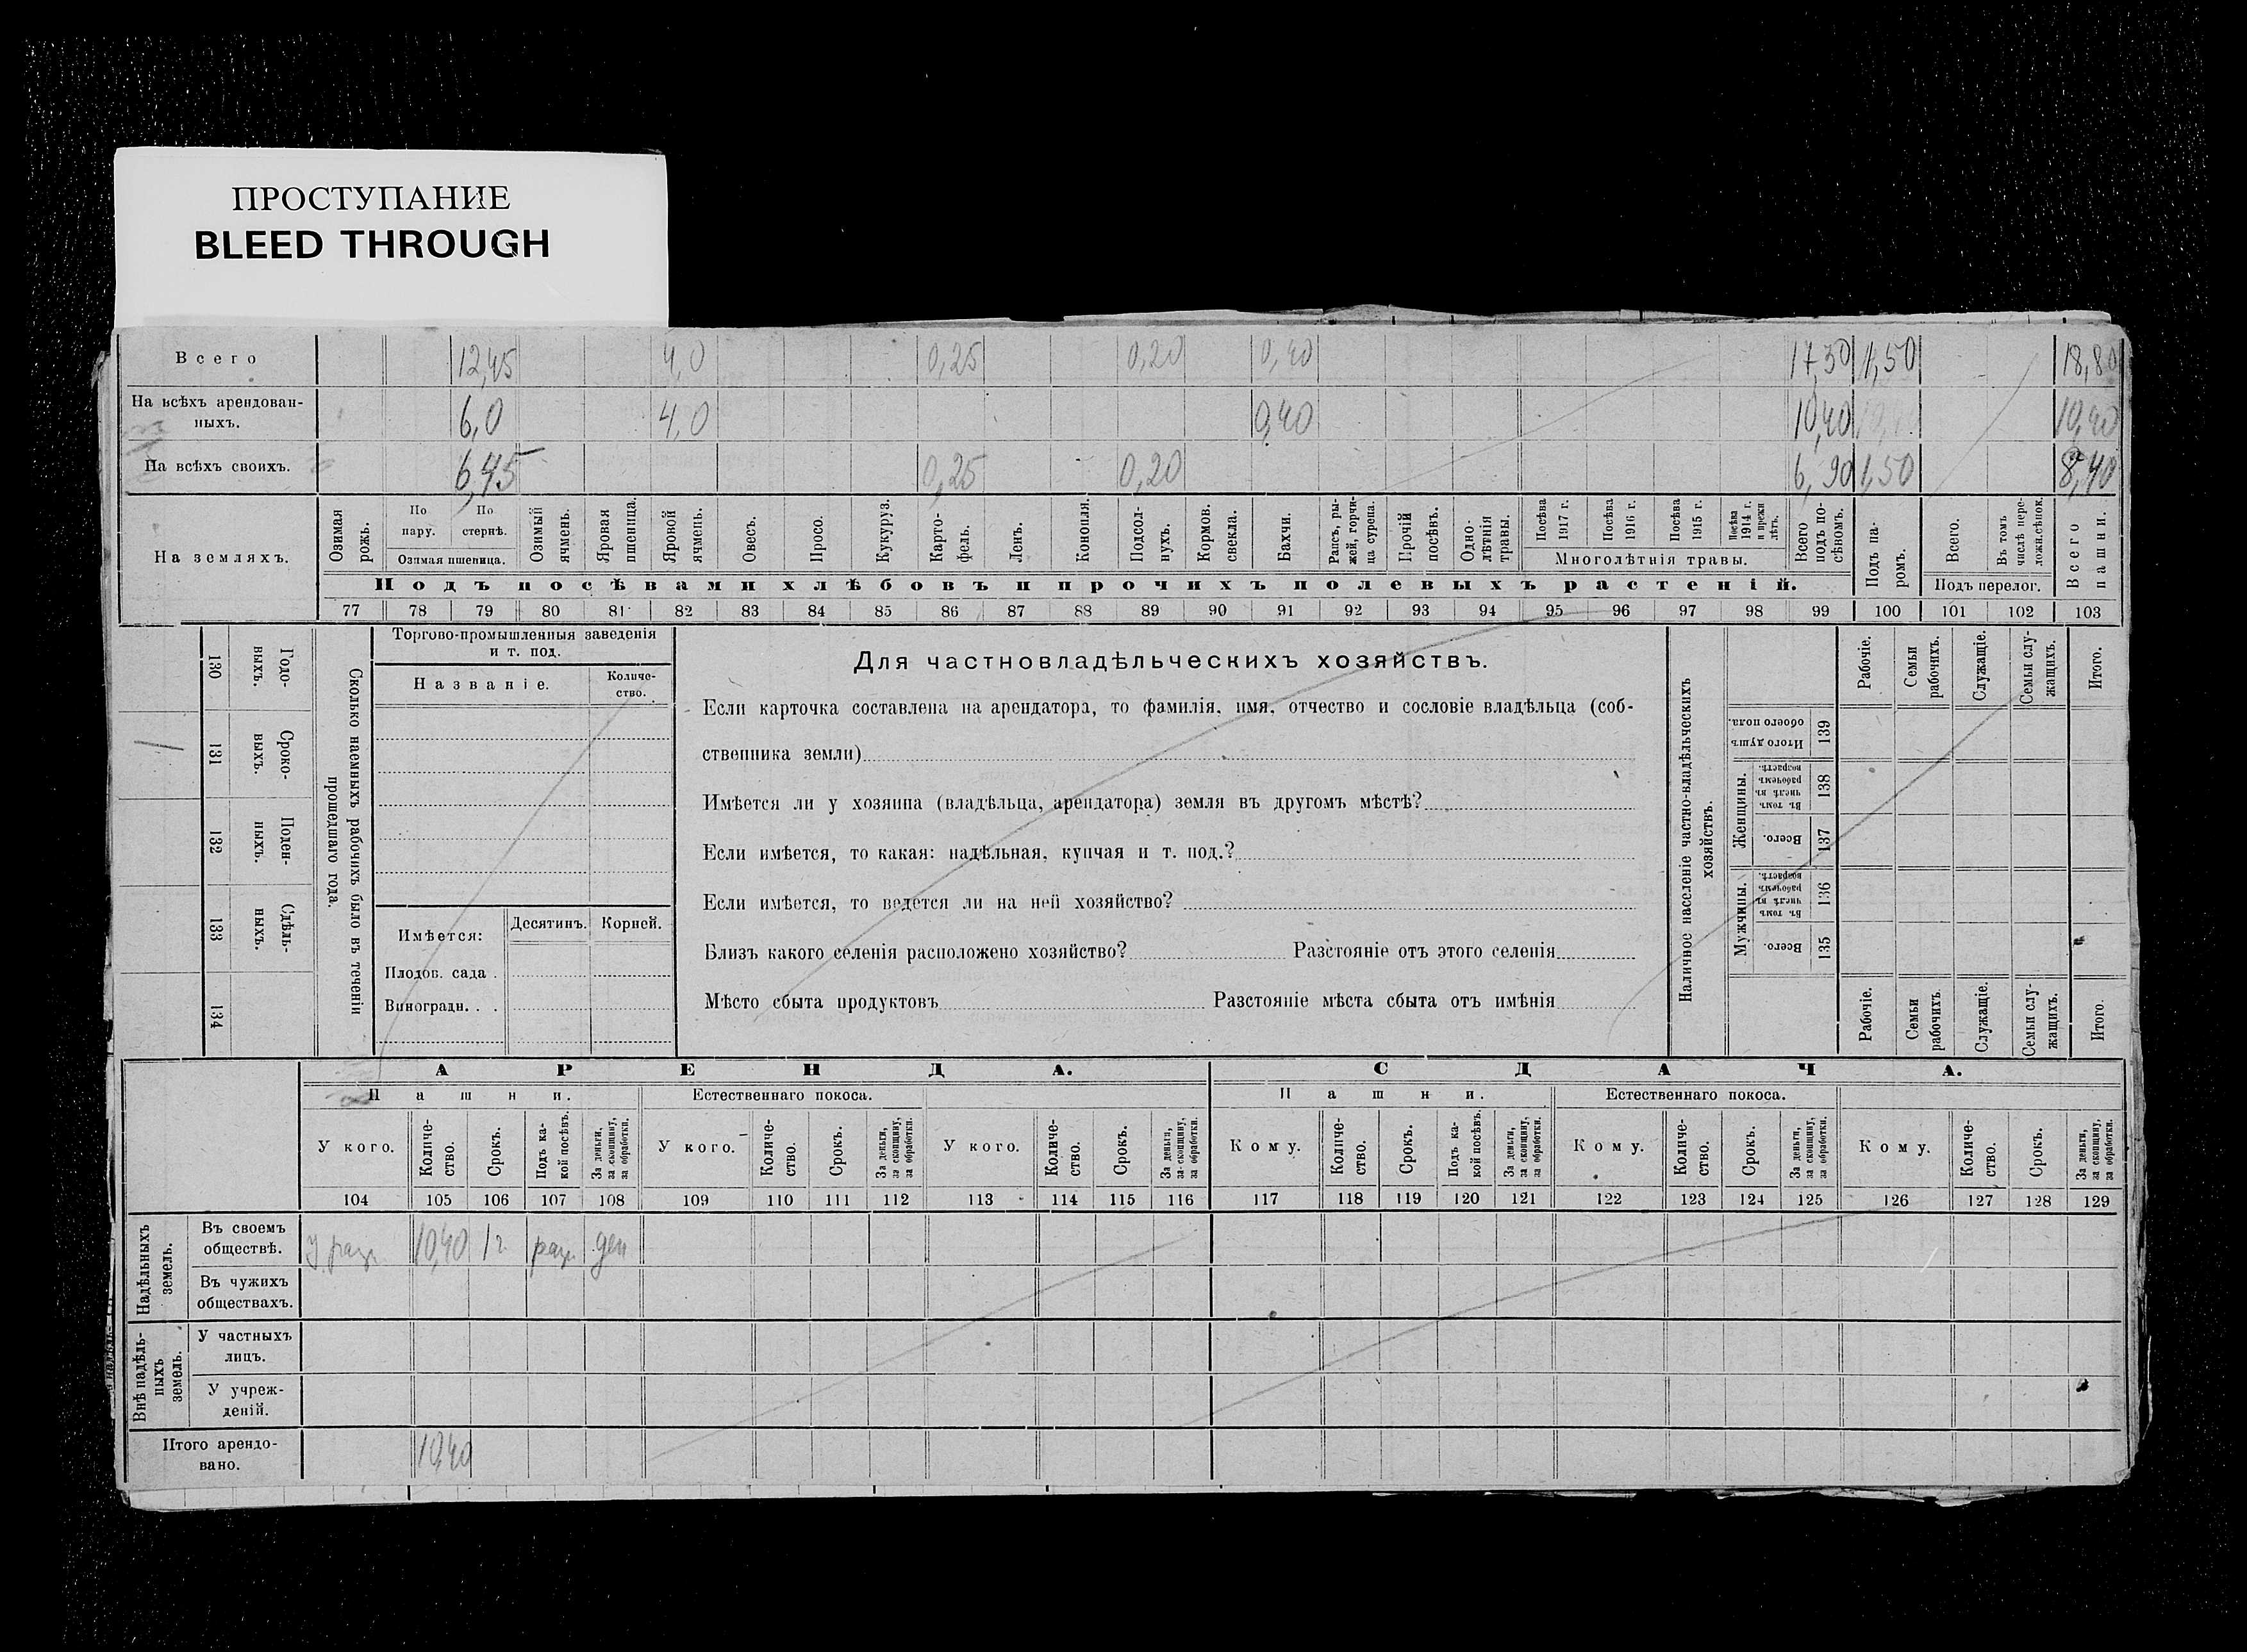 ПРОСТУПАНИЕ
BLEED THROUGH
Всего 12,45 4,0 0,25 0,20 0,40 17,30 1,50 18,80
На всѣхъ арендован-
ныхъ. 6,0 4,0 0,40 10,40 10,40
На всѣхъ своихъ. 6,45 0,25 0,20 6,90 1,50 8,40
На земляхъ.
Озимая рожь.
По пару.
По стернѣ.
Озимая пшеница.
Озимый ячмень.
Яровая пшеница.
Яровой ячмень.
Овесъ.
Просо.
Кукуруз.
Карто-
фель.
Ленъ.
Конопля.
Подсол-
нухъ.
Кормов. свекла.
Бахчи.
Рапсъ, ры-
жей, горчи-
ца сурепа.
Прочій посѣвъ.
Одно-
лѣтнія травы.
Посѣва 1917 г.
Посѣва 1916 г.
Посѣва 1915 г.
Посѣва 1914 г. и прежн лѣтъ.
Многолѣтнія травы.
Всего подъ по-
сѣвомъ.
Подъ па-
ромъ.
Всего.
Въ томъ числѣ пере-
ложн.сѣнок.
Подъ перелог.
Всего пашни.
Подъ посѣвами хлѣбовъ и прочихъ полевыхъ растеній.
77 78 79 80 81 82 83 84 85 86 87 88 89 90 91 92 93 94 95 96 97 98 99 100 101 102 103
130 Годо-
выхъ.
131 Сроко-
выхъ.
132 Поден-
ныхъ.
133 Сдѣль-
ныхъ.
134
Сколько наемныхъ рабочихъ было въ теченіи
прошедшаго года.
Торгово-промышленныя заведенія
и т. под.
Названіе.
Количе-
ство.
Имѣется: Десятинъ. Корней.
Плодов. сада .
Виноградн. . .
Для частновладѣльческихъ хозяйствъ.
Если карточка составлена на арендатора, то фамилія, имя, отчество и сословіе владѣльца (соб-
ственника земли)
Имѣется ли у хозяина (владѣльца, арендатора) земля въ другомъ мѣстѣ?
Если имѣется, то какая: надѣльная, купчая и т. под.?
Если имѣется, то ведется ли на ней хозяйство?
Близъ какого селенія расположено хозяйство? Разстояніе отъ этого селенія
Мѣсто сбыта продуктовъ Разстояніе мѣста сбыта отъ имѣнія
Наличное населеніе частно-владѣльческихъ
хозяйствъ.
Рабочіе.
Семьи рабочихъ.
Служащіе.
Семьи слу-
жащихъ.
Итого.
Итого душъ обоего пола. 139
Женщины.
Въ томъ числѣ въ рабочемъ возрастѣ. 138
Всего. 137
Мужчины.
Въ томъ числѣ въ рабочемъ возрастѣ. 136
Всего. 135
Рабочіе.
Семьи рабочихъ.
Служащіе.
Семьи слу-
жащихъ.
Итого.
АРЕНДА. СДАЧА.
Пашни. Естественнаго покоса. Пашни. Естественнаго покоса.
У кого. Количе-
ство. Срокъ. Подъ ка-
кой посѣвъ. За деньги, за скопщину, за обработки.
У кого. Количе-
ство. Срокъ. За деньги, за скопщину, за обработки.
У кого. Количе-
ство. Срокъ. За деньги, за скопщину, за обработки.
Кому. Количе-
ство. Срокъ. Подъ ка-
кой посѣвъ. За деньги, за скопщину, за обработки.
Кому. Количе-
ство. Срокъ. За деньги, за скопщину, за обработки.
Кому. Количе-
ство. Срокъ. За деньги, за скопщину, за обработки.
104 105 106 107 108 109 110 111 112 113 114 115 116 117 118 119 120 121 122 123 124 125 126 127 128 129
Надѣльныхъ земель.
Въ своемъ
обществѣ. У разн. 10,40 1 г. разн. ден
Въ чужихъ
обществахъ.
Внѣ надѣль-
ныхъ земель.
У частныхъ
лицъ.
У учреж-
деній.
Итого арендо-
вано. 10,40